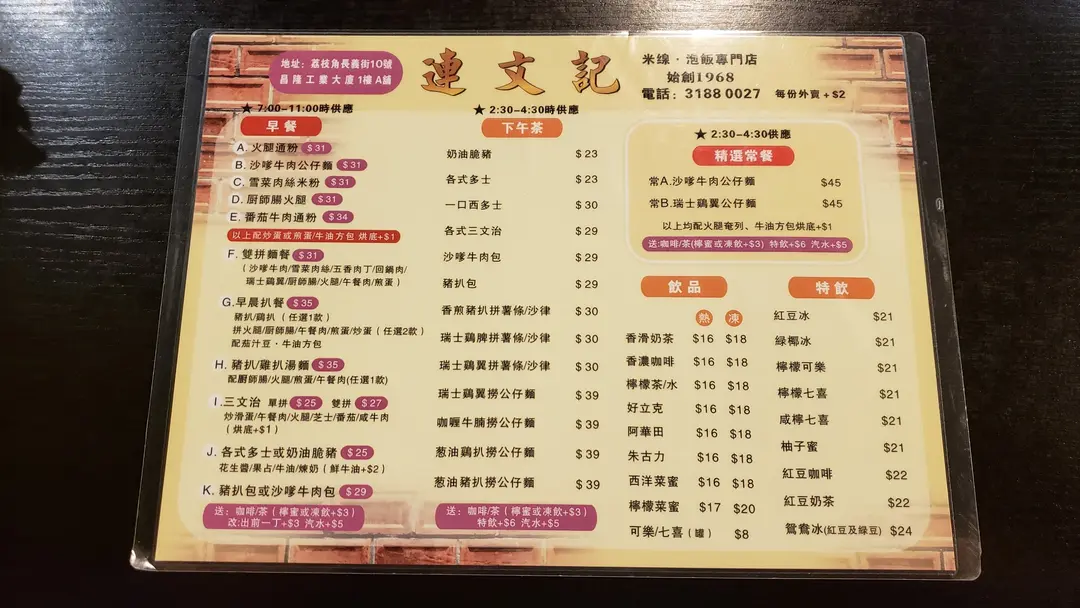 地址：荔枝角長義街10號
昌隆工業大廈1樓A舖
連文記
米線·泡飯專門店
始創1968
電話：3188 0027 每份外賣+$2
★ 7:00-11:00時供應
早餐
A. 火腿通粉 $31
B. 沙嗲牛肉公仔麵 $31
C. 雪菜肉絲米粉 $31
D. 厨師腸火腿 $31
E. 番茄牛肉通粉 $34
以上配炒蛋或煎蛋/牛油方包 烘底+$1
F. 雙拼麵餐 $31
（沙嗲牛肉/雪菜肉絲/五香肉丁/回鍋肉/
瑞士鷄翼/厨師腸/火腿/午餐肉/煎蛋）
G.早晨扒餐 $35
豬扒/鷄扒（任選1款）
拼火腿/厨師腸/午餐肉/煎蛋/炒蛋（任選2款）
配茄汁豆·牛油方包
H. 豬扒/雞扒湯麵 $35
配厨師腸/火腿/煎蛋/午餐肉(任選1款)
I.三文治 單拼 $25 雙拼 $27
炒滑蛋/午餐肉/火腿/芝士/番茄/咸牛肉
（烘底+$1）
J. 各式多士或奶油脆豬 $25
花生醬/果占/牛油/煉奶（鮮牛油+$2）
K. 豬扒包或沙嗲牛肉包 $29
送：咖啡/茶（檸蜜或凍飲+$3）
改:出前一丁+$3 汽水+$5
★ 2:30-4:30時供應
下午茶
奶油脆豬 $23
各式多士 $23
一口西多士 $30
各式三文治 $29
沙嗲牛肉包 $29
豬扒包 $29
香煎豬扒拼薯條/沙律 $30
瑞士鷄髀拼薯條/沙律 $30
瑞士鷄翼拼薯條/沙律 $30
瑞士鷄翼撈公仔麵 $39
咖喱牛腩撈公仔麵 $39
葱油鷄扒撈公仔麵 $39
葱油豬扒撈公仔麵 $39
送：咖啡/茶（檸蜜或凍飲+$3）
特飲+$6 汽水+$5
★ 2:30-4:30供應
精選常餐
常A.沙嗲牛肉公仔麵 $45
常B.瑞士鷄翼公仔麵 $45
以上均配火腿奄列、牛油方包烘底+$1
送:咖啡/茶(檸蜜或凍飲+$3) 特飲+$6 汽水+$5
飲品
熱 凍
香滑奶茶 $16 $18
香濃咖啡 $16 $18
檸檬茶/水 $16 $18
好立克 $16 $18
阿華田 $16 $18
朱古力 $16 $18
西洋菜蜜 $16 $18
檸檬菜蜜 $17 $20
可樂/七喜（罐） $8
特飲
紅豆冰 $21
綠椰冰 $21
檸檬可樂 $21
檸檬七喜 $21
咸檸七喜 $21
柚子蜜 $21
紅豆咖啡 $22
紅豆奶茶 $22
鴛鴦冰(紅豆及綠豆) $24